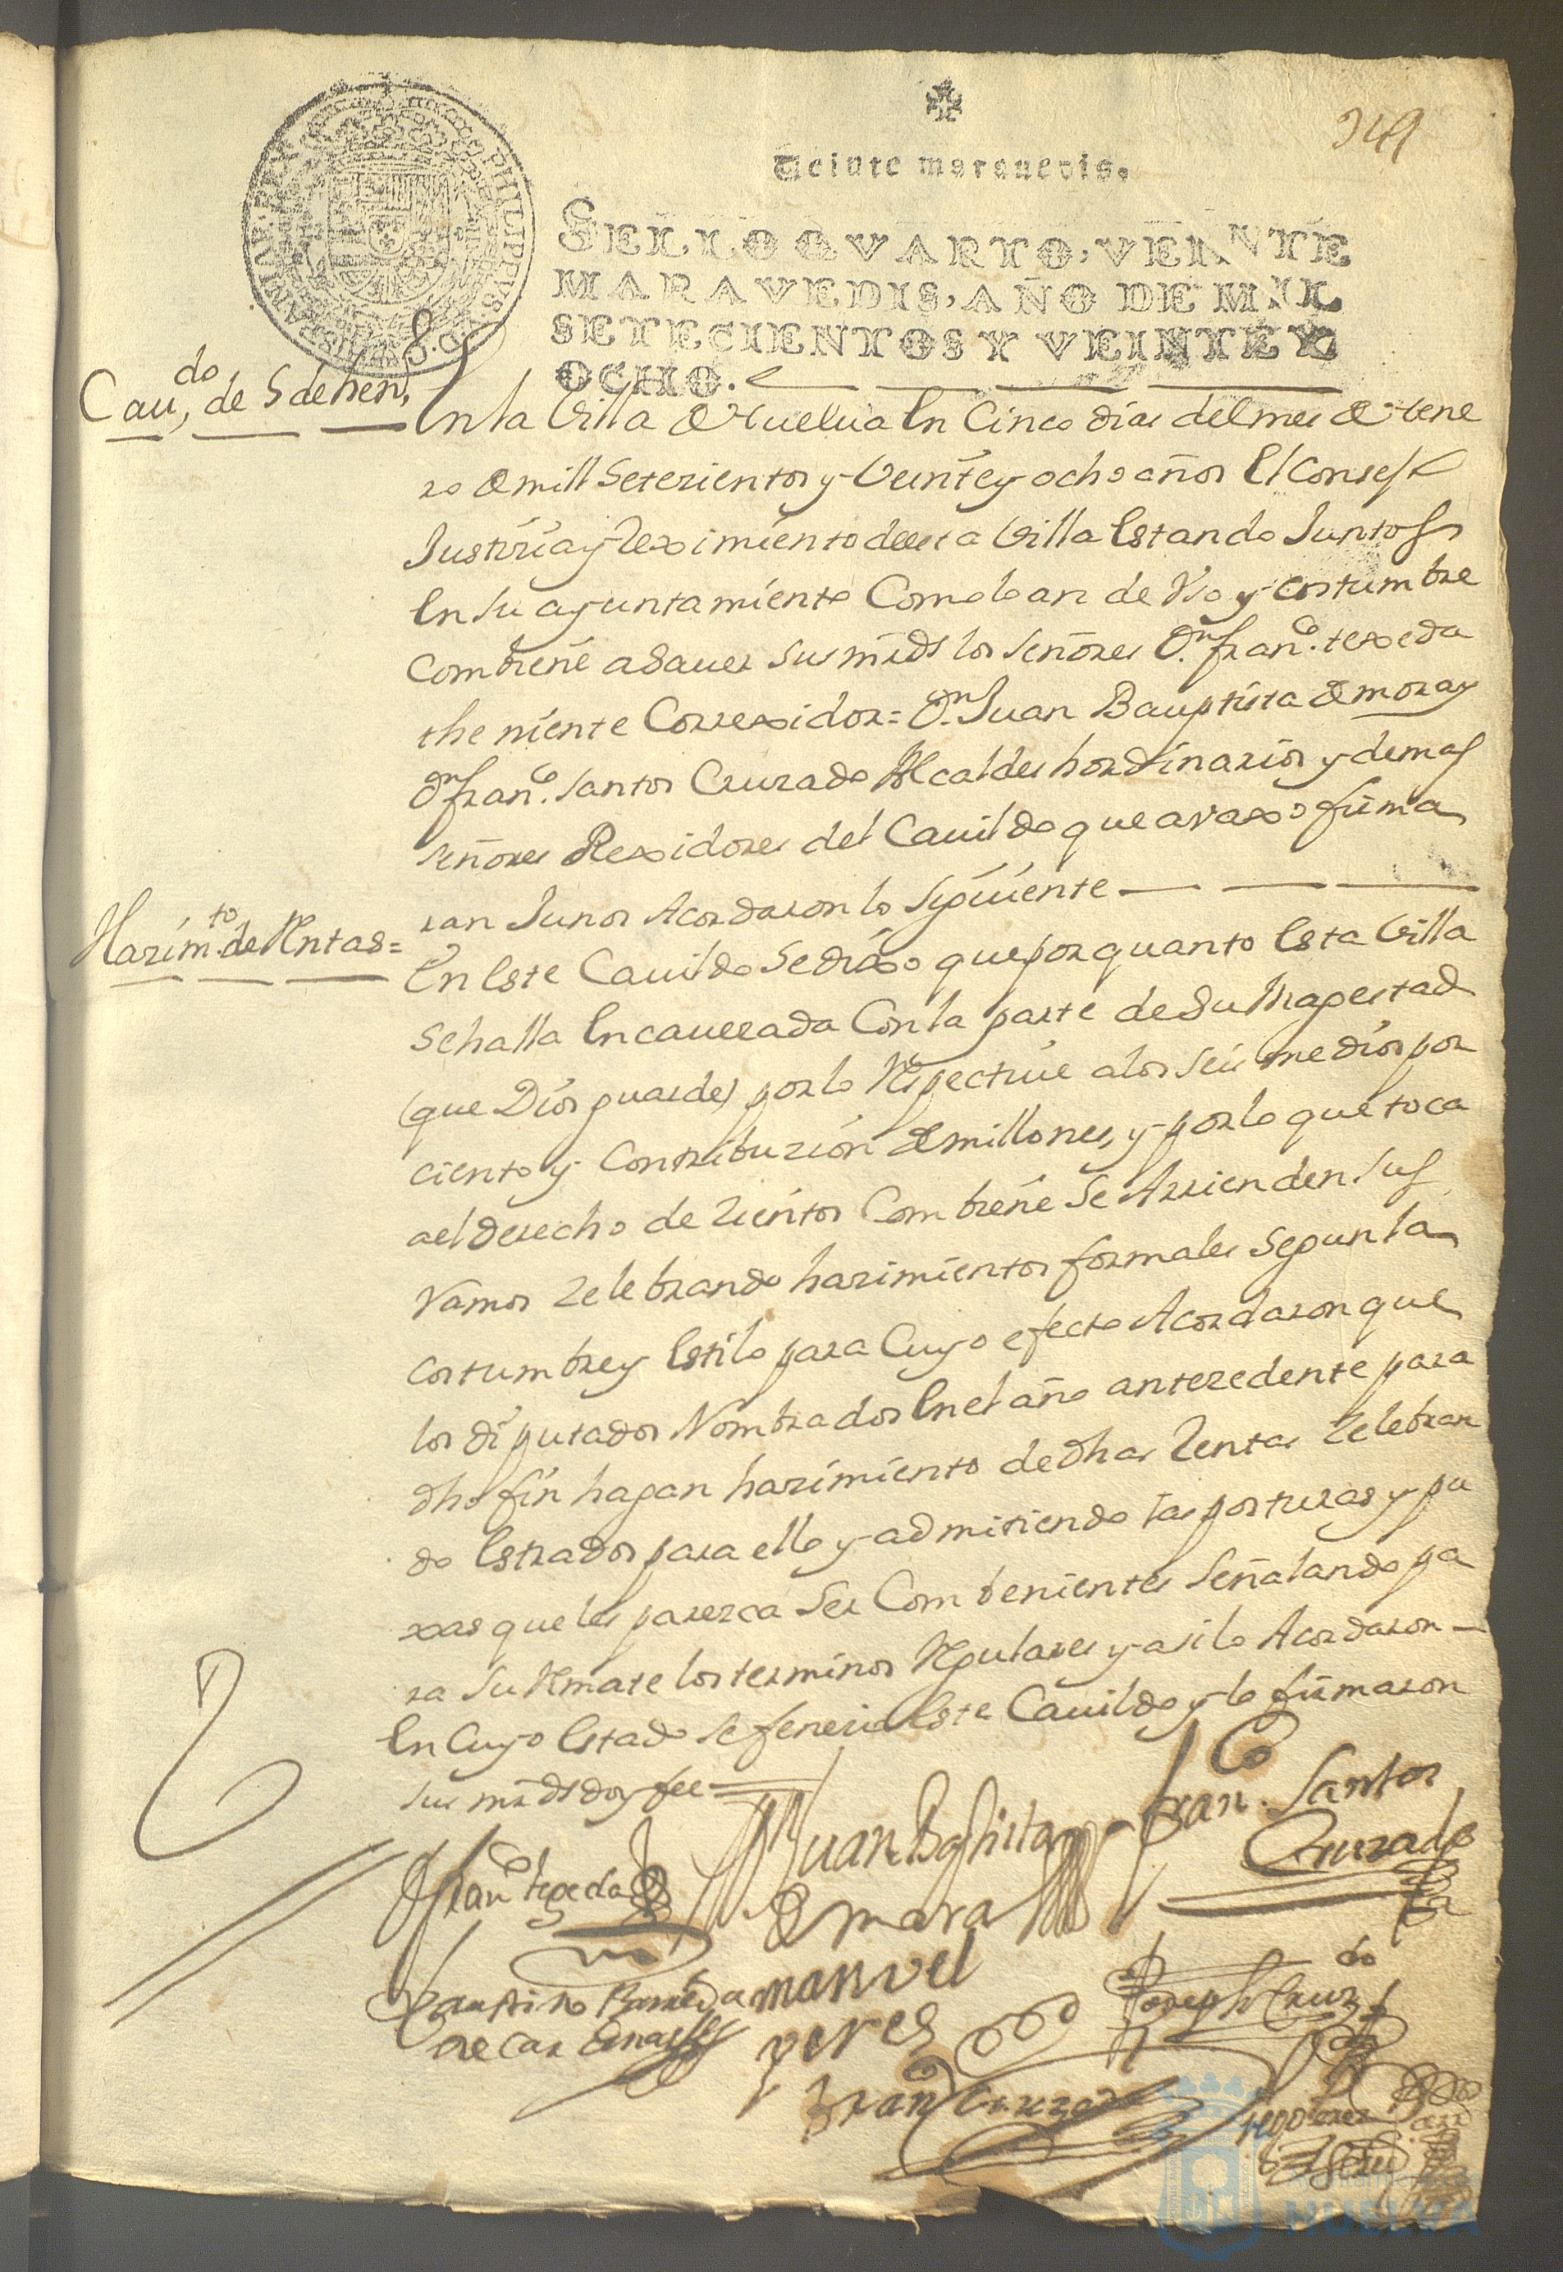 349
Veinte marauedis.
SELLO QVARTO, VEINTE
MARAVEDIS, AÑO DE MIL
SETECIENTOS Y VEINTE Y
OCHO.
PHILIPPUS. V. D. G. HISPANIAR. REX
Cau.do de 5 de hen.o
En la Villa de Huelua En Cinco dias del mes de Hene
ro de mill Setezientos y Veinte y ocho años El Consejo
Justizia y Reximiento desta Villa Estando Juntos
En su ayuntamiento Como lo an de Vso y costumbre
Combiene a Sauer Sus mrds los señores Dn. fran.co texeda
theniente Correxidor = Dn. Juan Bauptista de mora y
Dn. fran.co santos Cruzado Alcaldes hordinarios y demas
señores Rexidores del Cauildo que avaxo firma
ran Junos Acordaron lo siguiente
Harim.to de Rentas =
En Este Cauildo Se dixo que por quanto Esta Villa
Se halla Encauezada Con la parte de Su Magestad
(que Dios guarde) por lo Respectiue a los seis medios por
ciento y Contribuzion de millones, y por lo que toca
a el derecho de zientos Combiene Se Arrienden sus
Ramos Zelebrando harimientos formales Segun la
costumbre y Estilo para Cuyo efecto Acordaron que
los diputados Nombrados En el año antezedente para
dho fin hagan harimiento de dhas Rentas Zelebran
do Estrados para ello y admitiendo las posturas y pu
xas que les parezca Ser Combenientes Señalando pa
ra Su Remate los terminos Regulares y asi lo Acordaron
En Cuyo Estado Se fenezio Este Cauildo y lo firmaron
sus mrds doy fee
Juan Baptista
de mora
Fran.co Santos
Cruzado
Dn fran.co texeda
Faustino
manuel
peres
Joseph Cruz.do
Fran.co Cruzado
HUELVA